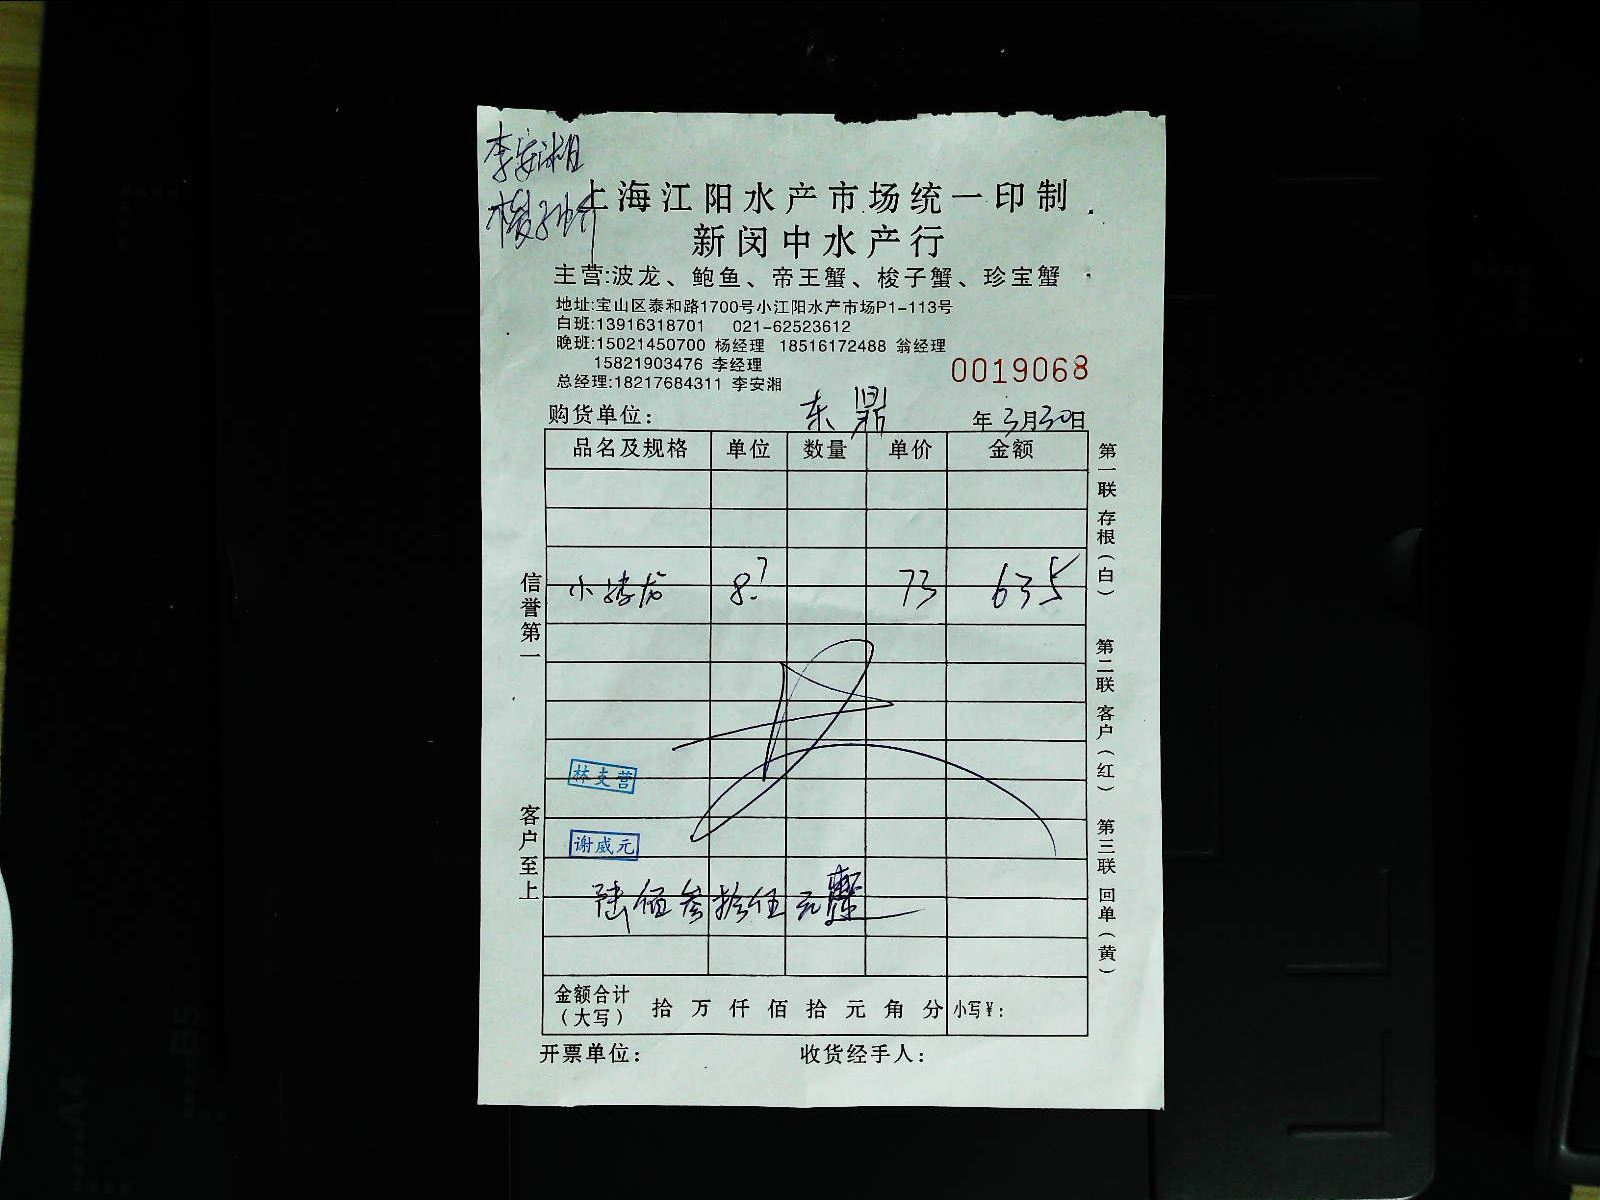 李安湘
梭子蟹
上海江阳水产市场统一印制
新闵中水产行
主营:波龙、鲍鱼、帝王蟹、梭子蟹、珍宝蟹
地址:宝山区泰和路1700号小江阳水产市场P1-113号
白班:13916318701 021-62523612
晚班:15021450700 杨经理 18516172488 翁经理
15821903476 李经理
总经理:18217684311 李安湘
0019068
购货单位: 东鼎 年 3月30日
品名及规格 单位 数量 单价 金额
小 龙 8.7 73 635
林支营
谢威元
陆佰叁拾伍元整
金额合计(大写) 拾 万 仟 佰 拾 元 角 分 小写¥:
开票单位: 收货经手人:
信誉第一
客户至上
第一联 存根(白)
第二联 客户(红)
第三联 回单(黄)